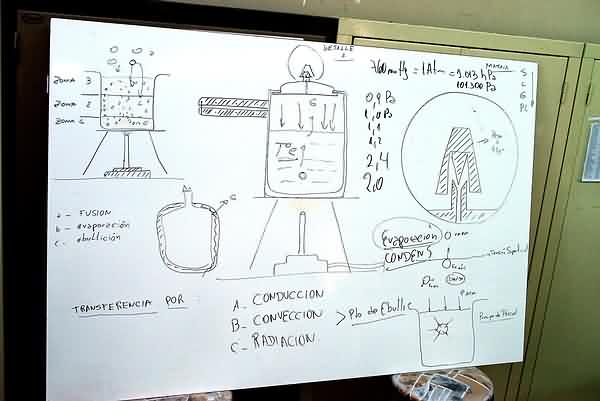 DETALLE
1
760 mmHg = 1 Atm = 1.013 hPa
101.300 Pa
MATERIA
S
L
G
PL
ZONA 3
ZONA 2
ZONA 1
G
0,9 Pa
1,0 Pa
1,1
1,2
2,4
2,0
T° eq
a - FUSION
b - evaporación
c - ebullición
Evaporación
CONDENS
Tensión Superficial
TRANSFERENCIA POR
A - CONDUCCION
B - CONVECCION
C - RADIACION
> Pto de Ebullic
Principio de Pascal